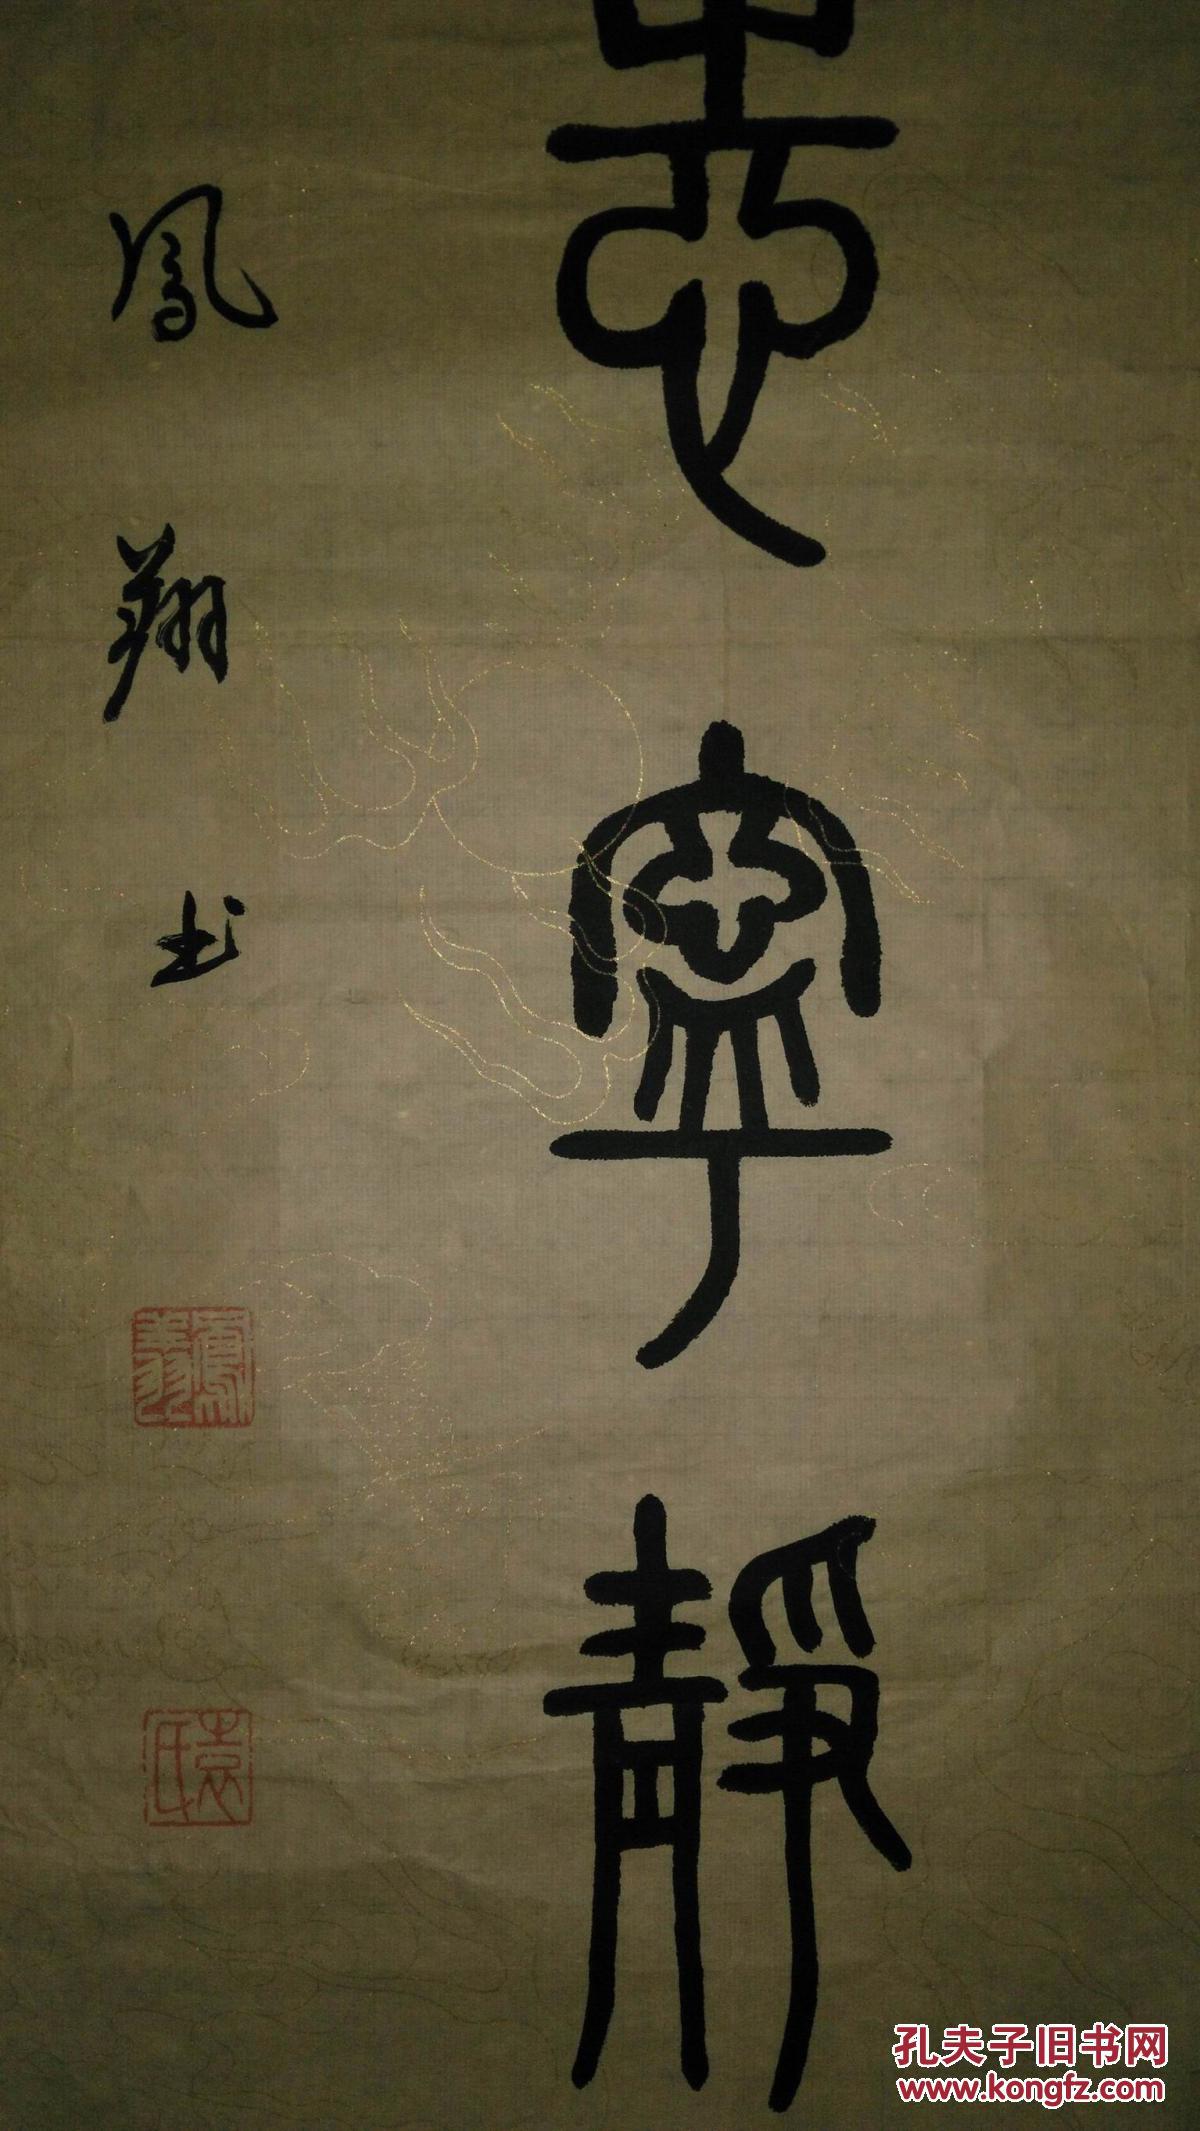 志寧靜
鳳翔书
鳳翔
袁氏
孔夫子旧书网
www.kongfz.com